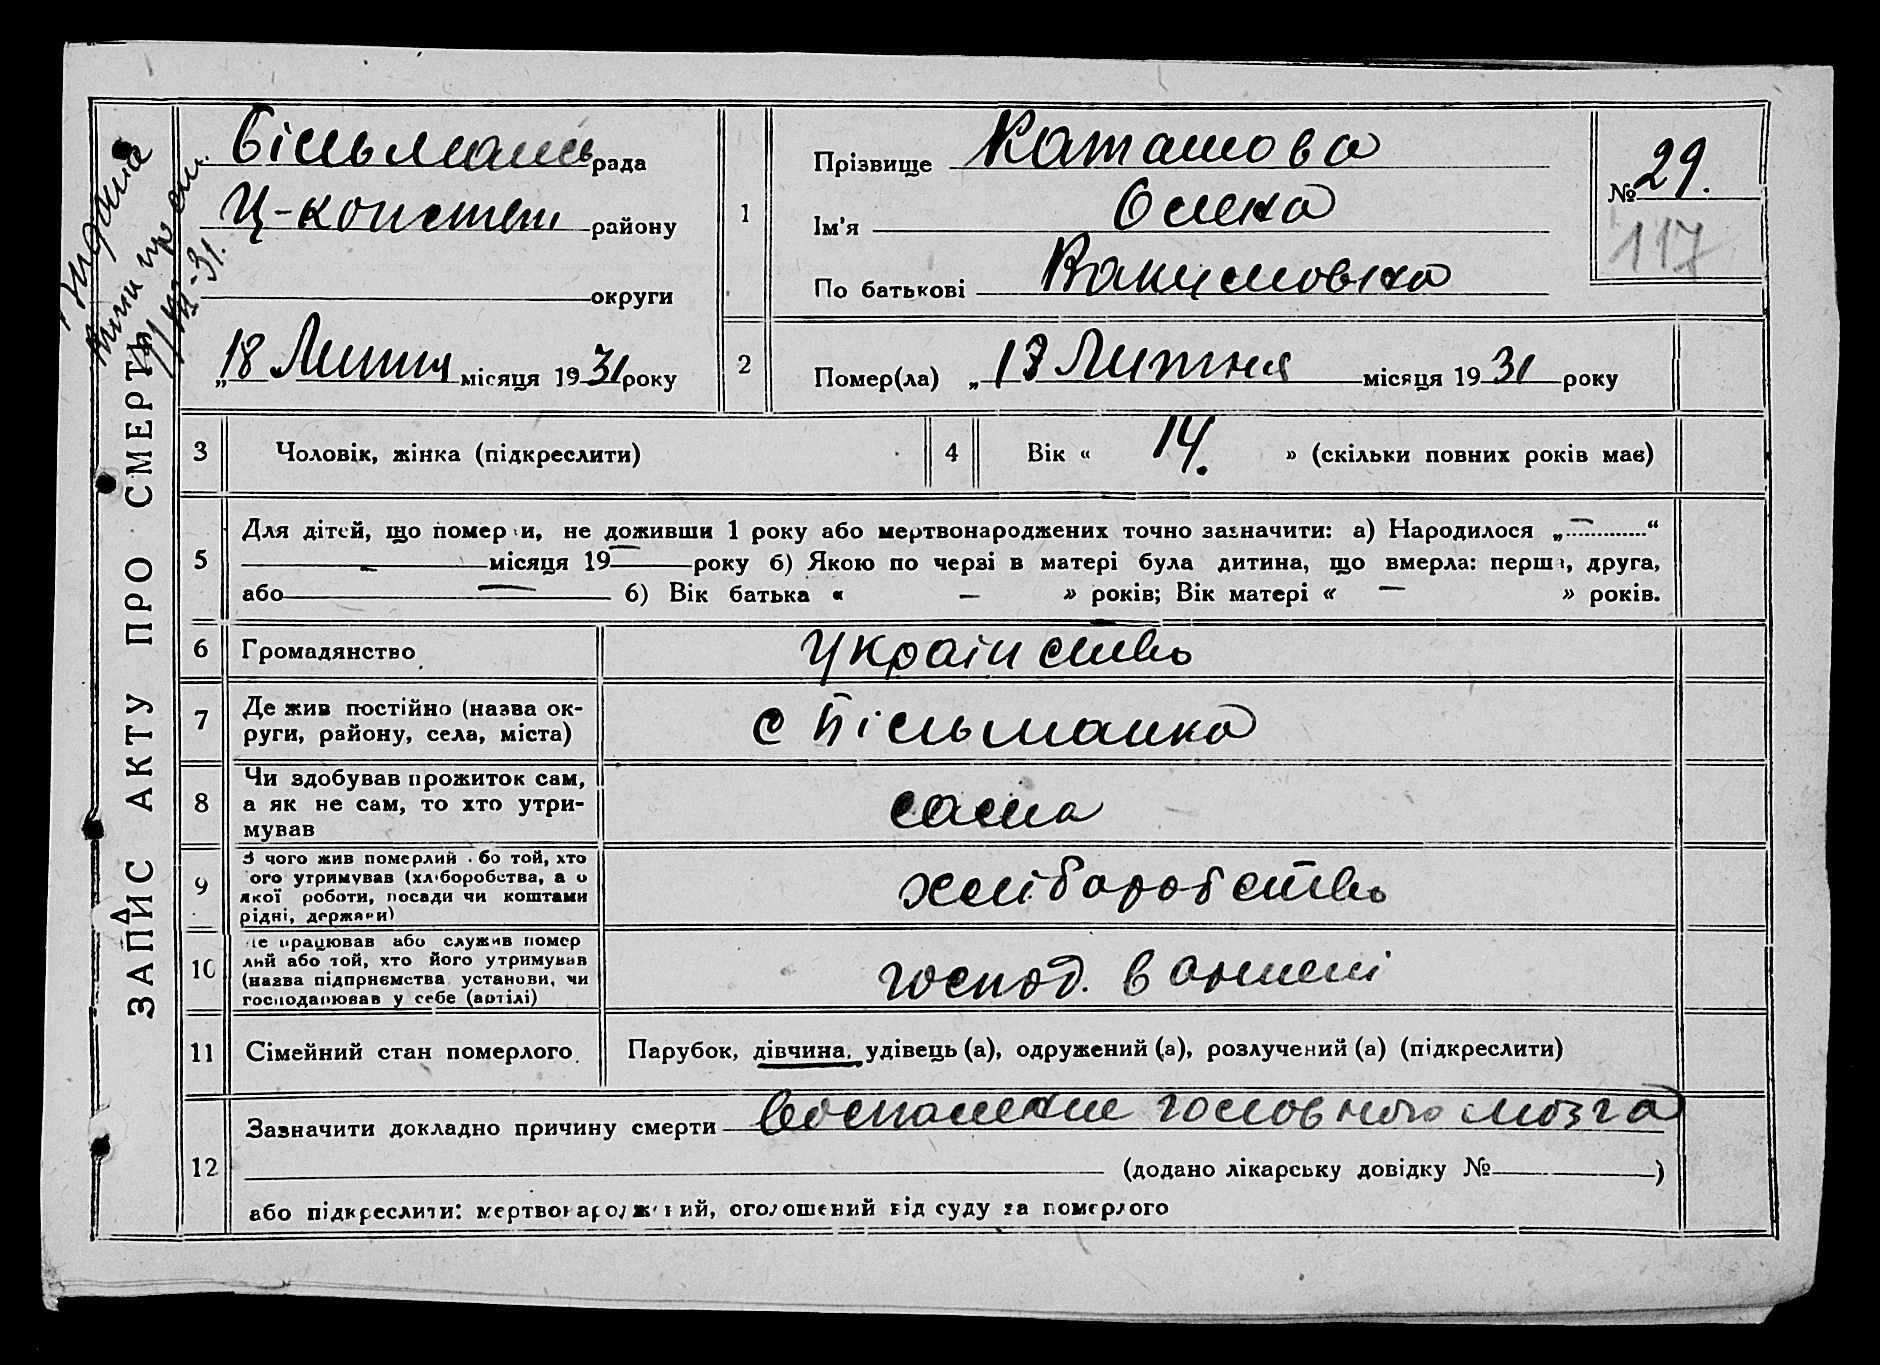 ЗАПИС АКТУ ПРО СМЕРТЬ
Більманс рада
Ц-констент району
округи
„18 Липня місяця 1931 року
1
Прізвище Каташова
Ім'я Олена
По батькові Вакумовна
№ 29.
117
2
Помер(ла) „17 Липня місяця 1931 року
3 Чоловік, жінка (підкреслити)
4 Вік « 14. » (скільки повних років має)
5
Для дітей, що померли, не доживши 1 року або мертвонароджених точно зазначити: а) Народилося „—“
— місяця 19— року б) Якою по черзі в матері була дитина, що вмерла: перша, друга,
або — б) Вік батька « — » років; Вік матері « — » років.
6 Громадянство Украінство
7 Де жив постійно (назва ок-
руги, району, села, міста) с Більманка
8 Чи здобував прожиток сам,
а як не сам, то хто утри-
мував сама
9 З чого жив померлий або той, хто
його утримував (хліборобства, а о
якої роботи, посади чи коштами
рідні, держави) хліборобство
10 Де працював або служив помер
лий або той, хто його утримував
(назва підприємства установи, чи
господарював у себе (артілі) господ. в артелі
11 Сімейний стан померлого. Парубок, дівчина, удівець (а), одружений (а), розлучений (а) (підкреслити)
12
Зазначити докладно причину смерти воспаление головного мозга
(додано лікарську довідку №)
або підкреслити: мертвонароджений, оголошений від суду за померлого